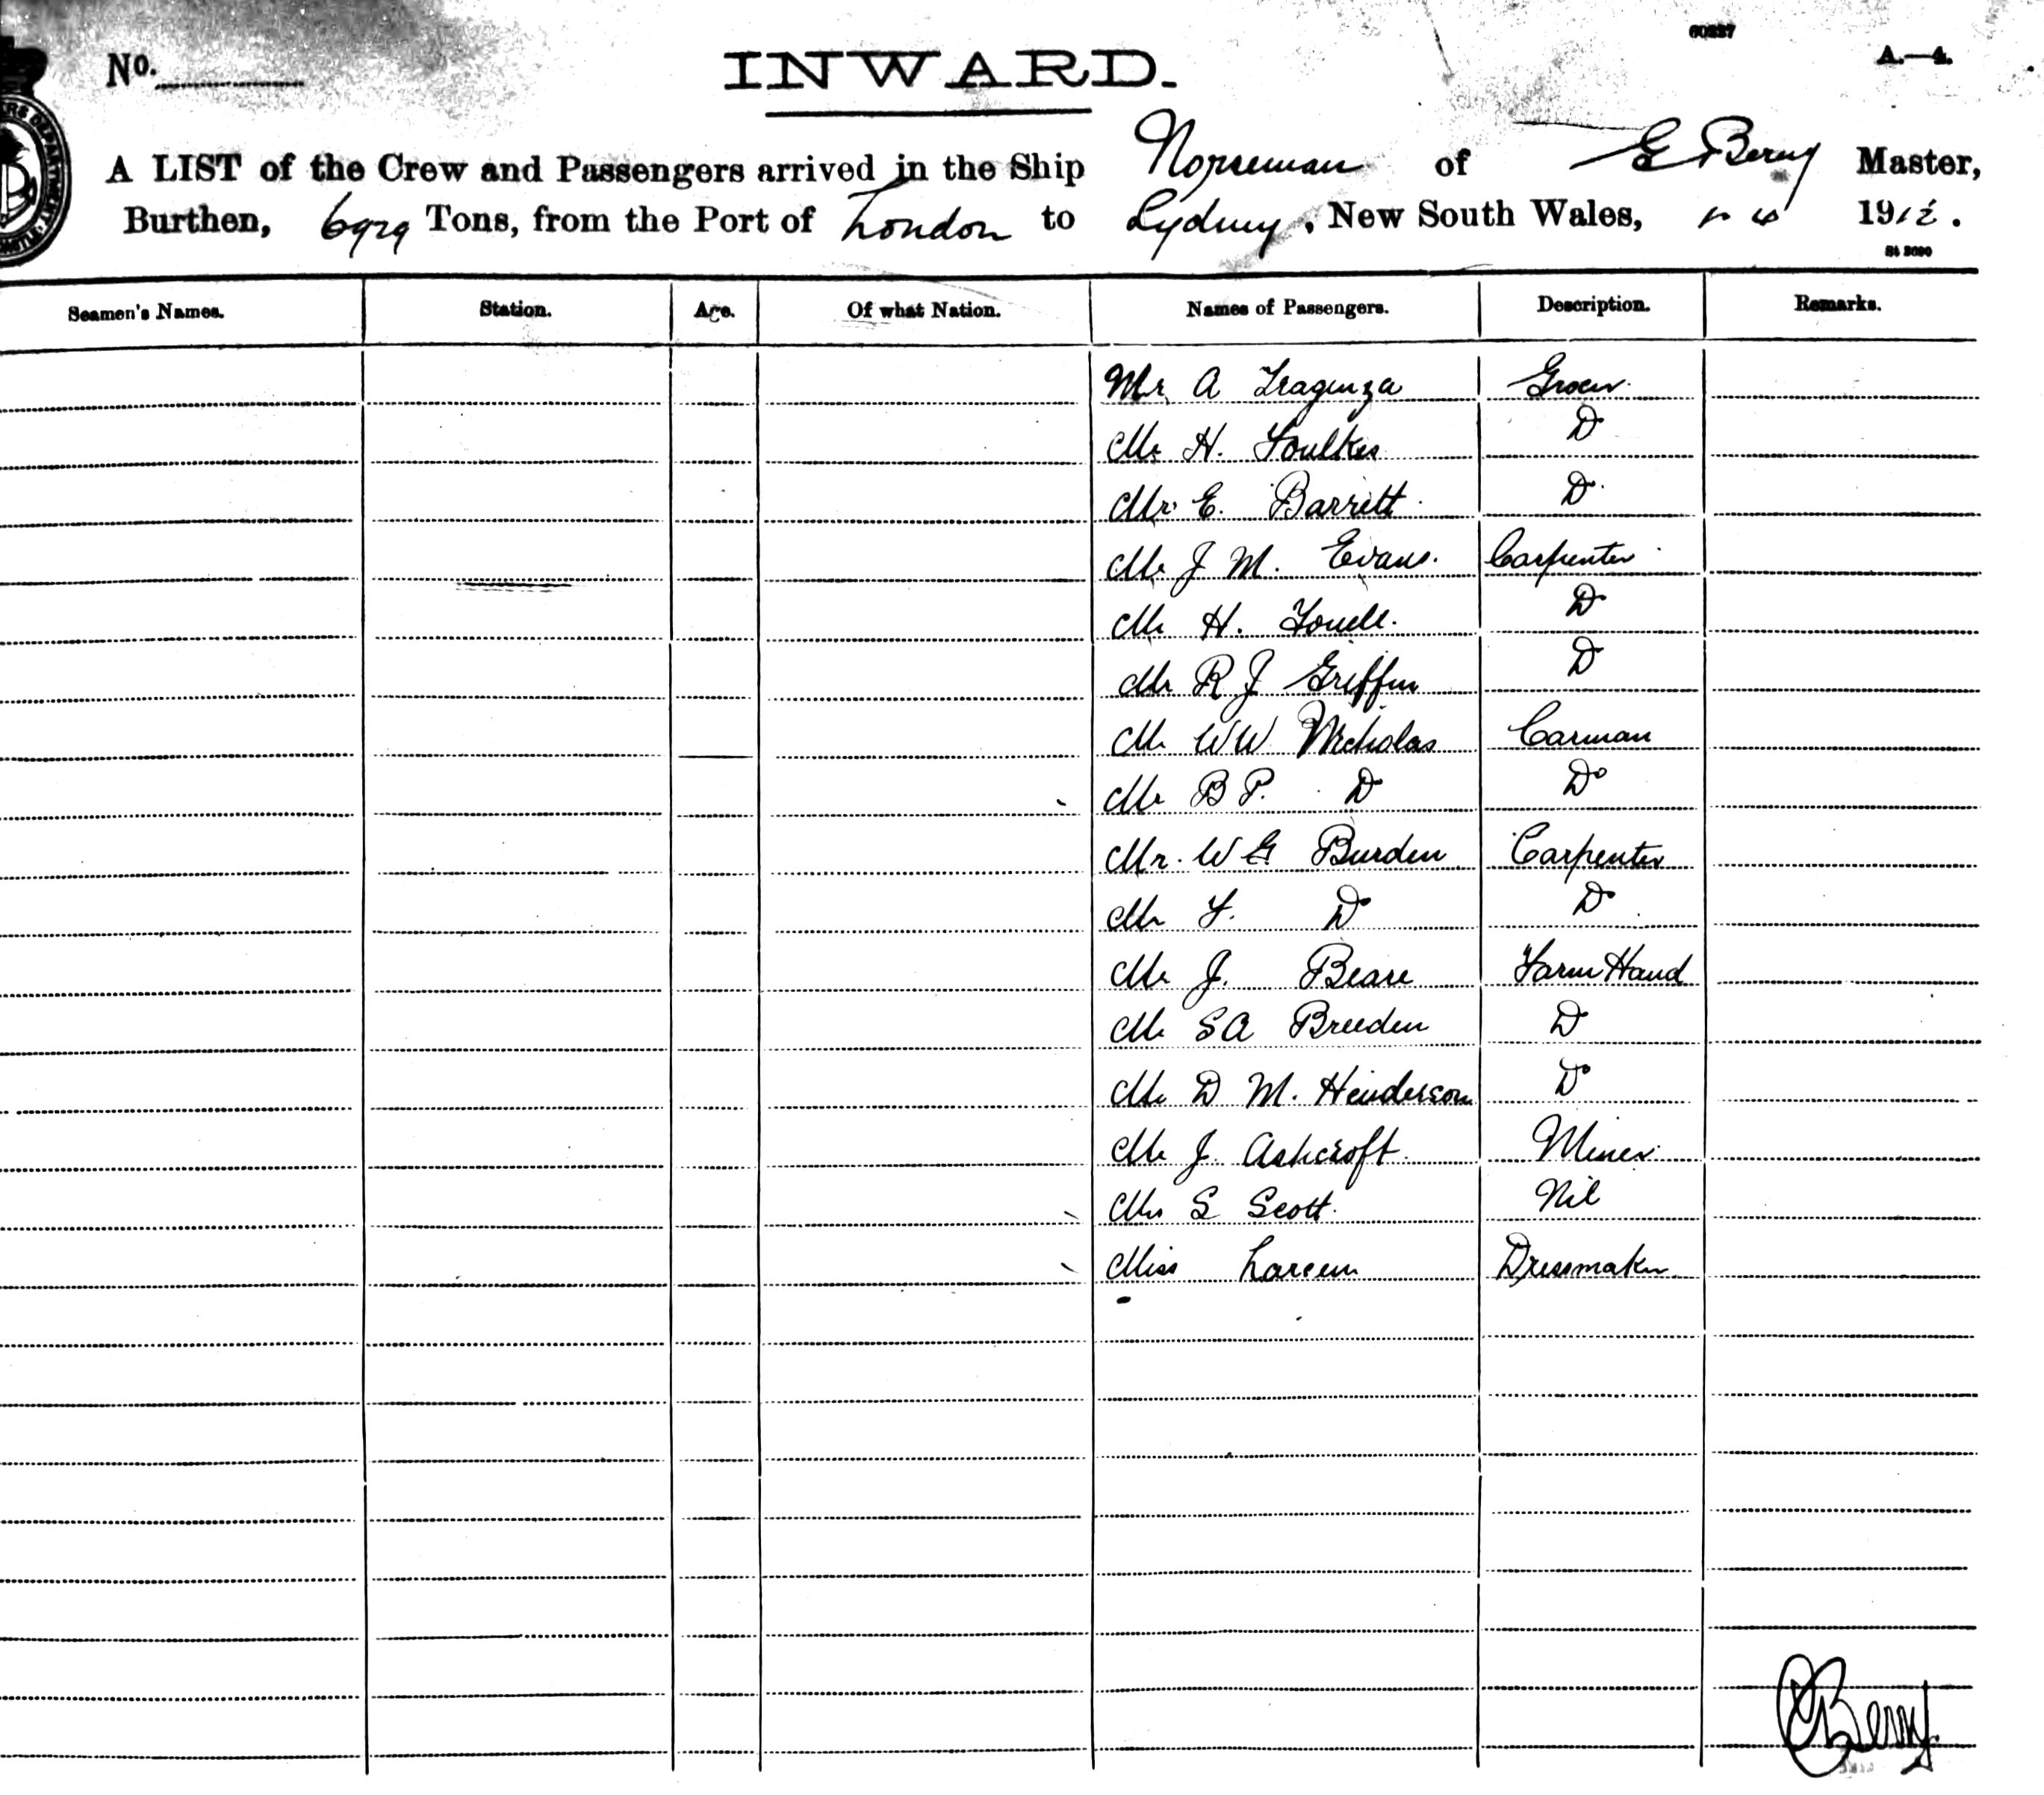 60337
A.—4.
No.
INWARD.
A LIST of the Crew and Passengers arrived in the Ship Norseman of E Berry Master,
Burthen, Tons, from the Port of London to Sydney, New South Wales, 1912.
Seamen's Names. Station. Age. Of what Nation. Names of Passengers. Description. Remarks.
Mr A Grocer
Mr H. Foulkes Do
Mr E. Barrett Do
Mr J M. Evans. Carpenter
Mr H. Do
Mr R J Griffin Do
Mr W W Nicholas Carman
Mr B P. Do Do
Mr. W G Burden Carpenter
Mr F. Do Do
Mr J. Beare Farm Hand
Mr S A Breeden Do
Mr D M. Henderson Do
Mr J. Ashcroft Miner
Mrs S Scott Nil
Miss Dressmaker
Berry.